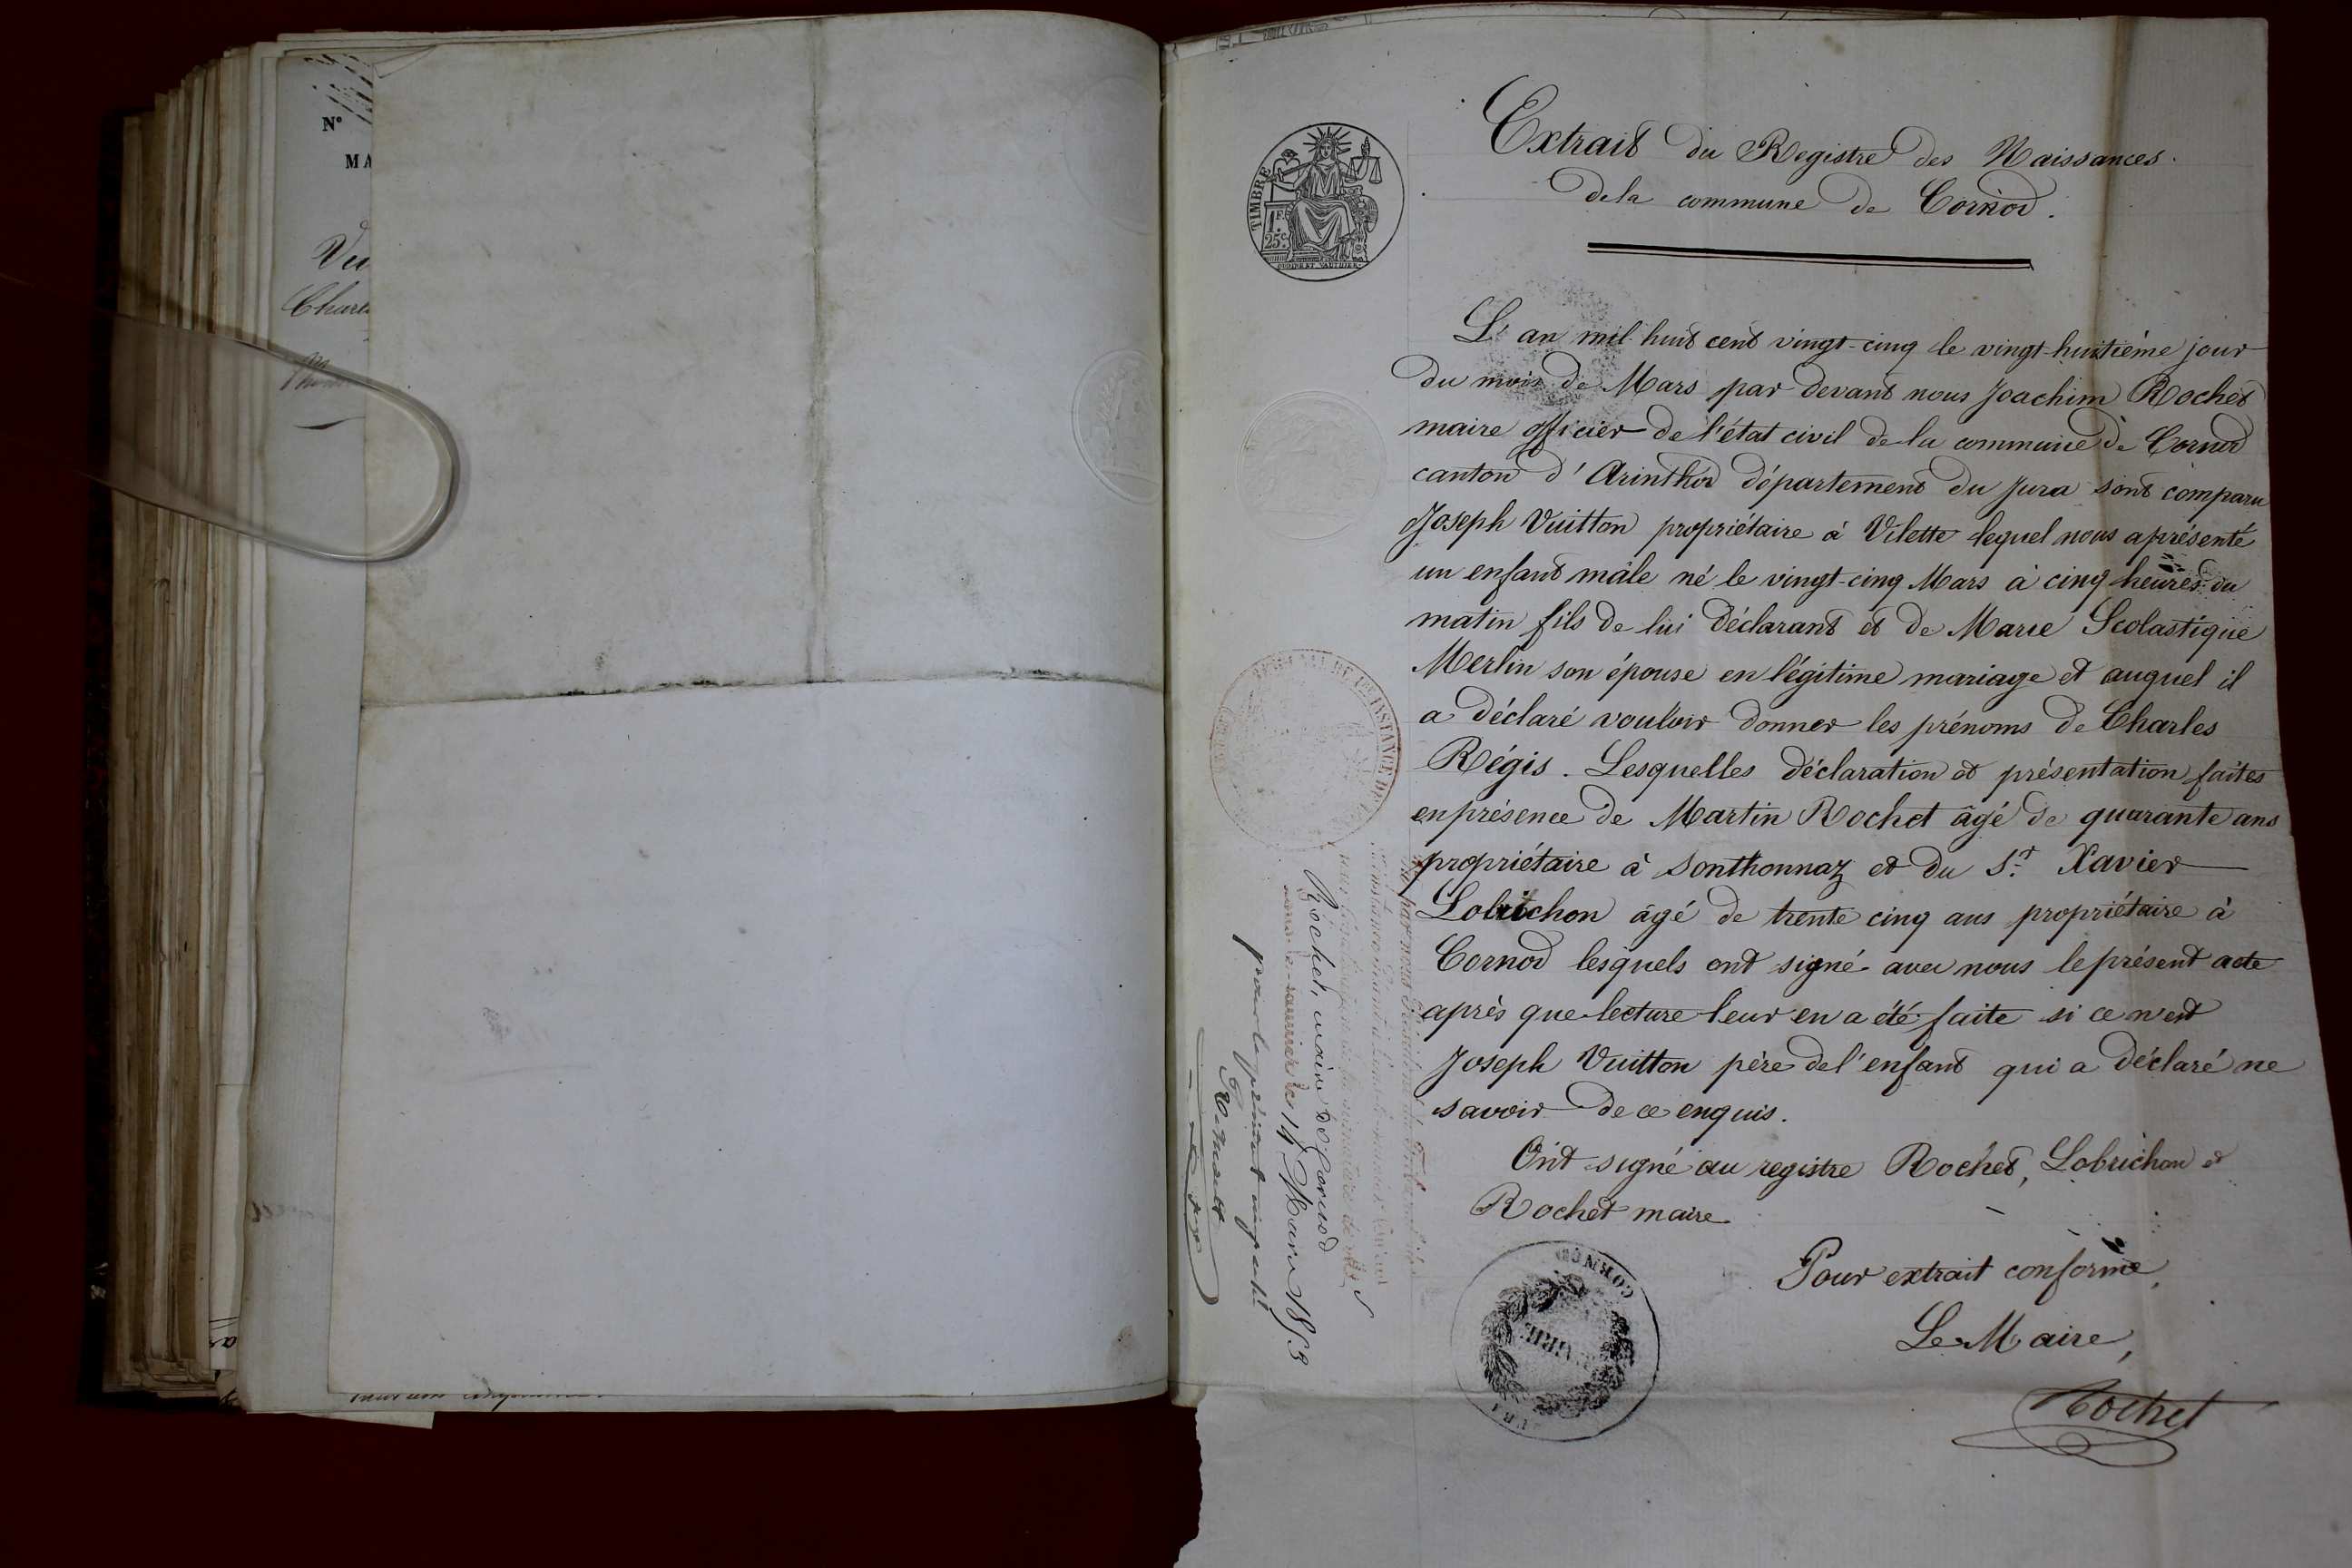 N°
MA
Vu
Extrait du Registre des Naissances.
de la commune de Cornod.
TIMBRE
1 F.
25 c.
L'an mil huit cent vingt-cinq le vingt-huitième jour
du mois de Mars par devant nous Joachim Rochet
maire officier de l'état civil de la commune de Cornod
canton d'Arinthod département du Jura sont comparu
Joseph Vuitton propriétaire à Vilette lequel nous a présenté
un enfant mâle né le vingt-cinq Mars à cinq heures du
matin fils de lui déclarant et de Marie Scolastique
Merlin son épouse en légitime mariage et auquel il
a déclaré vouloir donner les prénoms de Charles
Régis. Lesquelles déclaration et présentation faites
en présence de Martin Rochet âgé de quarante ans
propriétaire à Sonthonnaz et du Sr. Xavier
Lobrichon âgé de trente cinq ans propriétaire à
Cornod lesquels ont signé avec nous le présent acte
après que lecture leur en a été faite si ce n'est
Joseph Vuitton père de l'enfant qui a déclaré ne
savoir de ce enquis.
Ont signé au registre Rochet, Lobrichon et
Rochet maire
Pour extrait conforme,
Le Maire,
Rochet
CORNOD
MAIRIE
INSTANCE DE
Rochet, maire de Cornod
le 14 Mars 1853
pour le président empêché